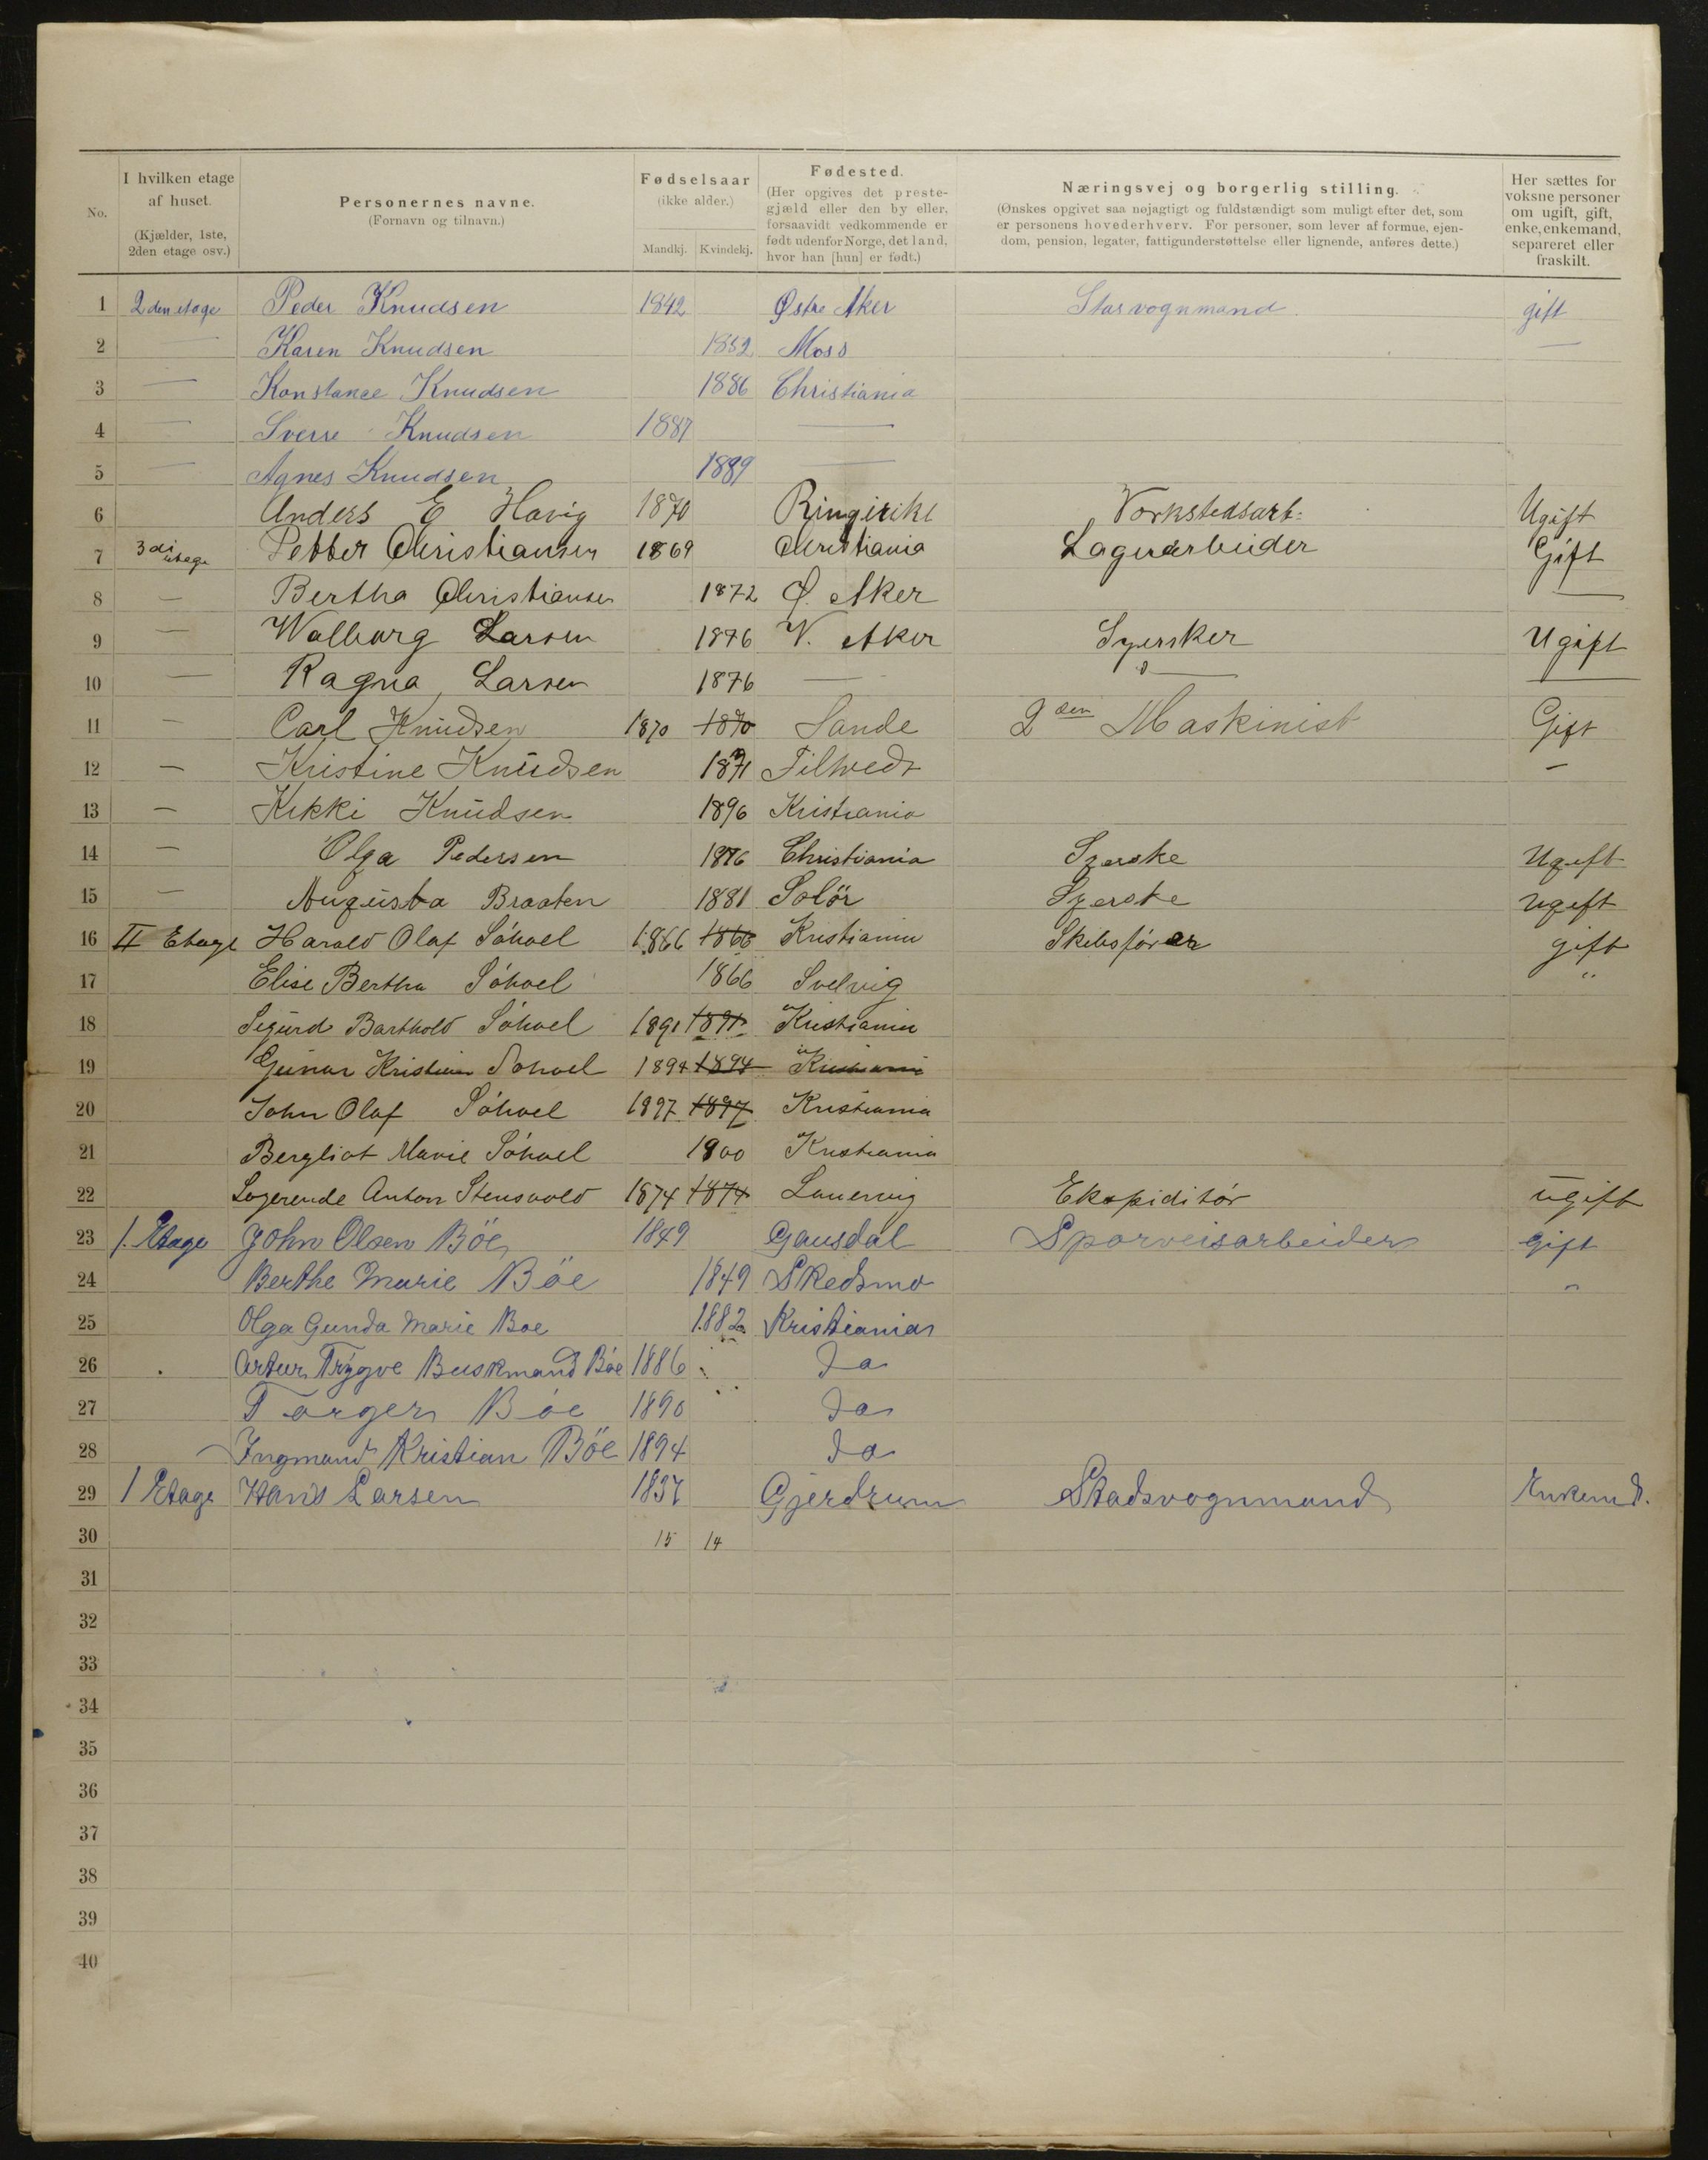 No.
I hvilken etage af huset. (Kjælder, 1ste, 2den etage osv.)
Personernes navne. (Fornavn og tilnavn.)
Fødselsaar (ikke alder.) Mandkj. Kvindekj.
Fødested. (Her opgives det prestegjæld eller den by eller, forsaavidt vedkommende er født udenfor Norge, det land, hvor han [hun] er født.)
Næringsvej og borgerlig stilling. (Ønskes opgivet saa nøjagtigt og fuldstændigt som muligt efter det, som er personens hovederhverv. For personer, som lever af formue, ejendom, pension, legater, fattigunderstøttelse eller lignende, anføres dette.)
Her sættes for voksne personer om ugift, gift, enke, enkemand, separeret eller fraskilt.
1 2den etage Peder Knudsen 1842 Østre Aker Stasvognmand. gift
2 — Karen Knudsen 1852 Moss —
3 — Konstance Knudsen 1886 Christiania
4 — Sverre Knudsen 1887 —
5 — Agnes Knudsen 1889 —
6 Anders E Havig 1870 Ringerike Værkstedsarb: Ugift
7 3di etage Petter Christiansen 1869 Christiania Lagerarbeider Gift
8 — Bertha Christiansen 1872 Ø. Aker —
9 — Walborg Larsen 1876 V. Aker Syersker Ugift
10 — Ragna Larsen 1876 — — —
11 — Carl Knudsen 1870 1870 Sande 2den Maskinist Gift
12 — Kristine Knudsen 1871 Filtvedt —
13 — Kikki Knudsen 1896 Kristiania
14 — Olga Pedersen 1876 Christiania Syerske Ugift
15 — Augusta Braaten 1881 Solör Syerske Ugift
16 II Etage Harald Olaf Sóhoel 1866 1866 Kristiania Skibsfører gift
17 Elise Bertha Sóhoel 1866 Svelvig "
18 Sigurd Barthold Sóhoel 1891 1891 Kristiania
19 Gunar Kristian Sohoel 1894 1894 Kristiania
20 John Olaf Sóhoel 1897 1897 Kristiania
21 Bergliot Marie Sóhoel 1900 Kristiania
22 Logerende Anton Stensvold 1874 1874 Laurvig Ekspiditór ugift
23 1. Etage John Olsen Böe 1849 Gausdal Sporveisarbeider gift
24 Berthe Marie Böe 1849 Skedsmo "
25 Olga Gunda Marie Boe 1882 Kristiania
26 Artur Trygve Buskmand Böe 1886 Do
27 Torger Böe 1890 Do
28 Ingmand Kristian Böe 1894 Do
29 1 Etage Hans Larsen 1837 Gjerdrum Stadsvognmand Enkemd.
30 15 14
31
32
33
34
35
36
37
38
39
40